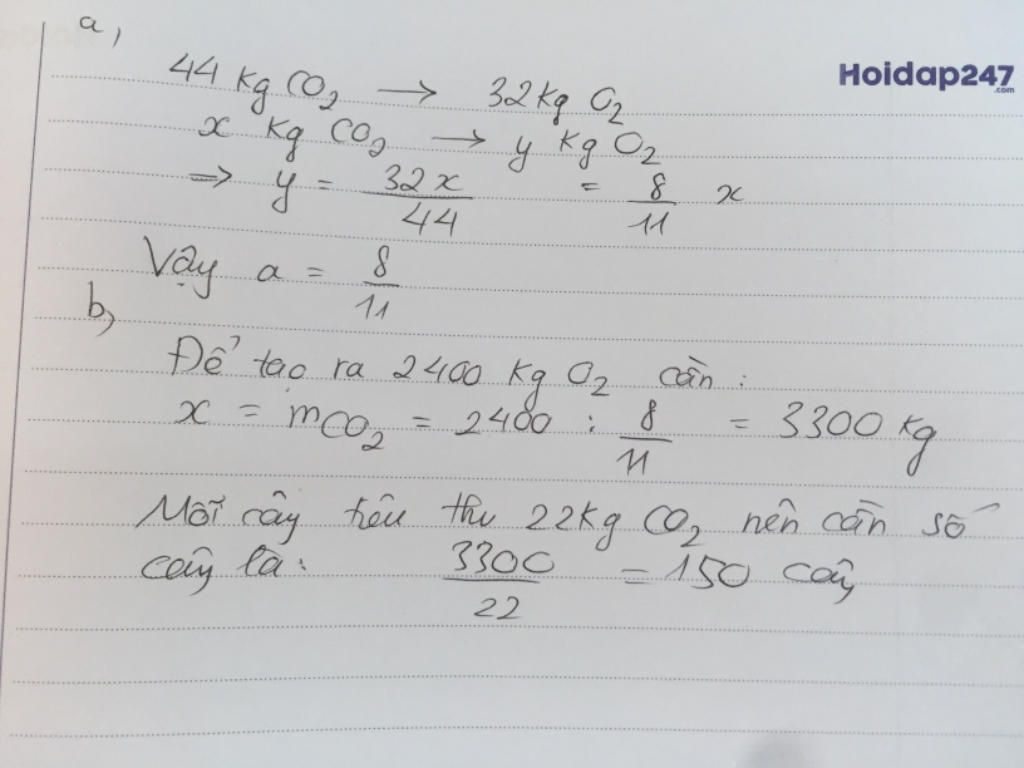 a,
Hoidap247
.com
44 kg CO2 → 32kg O2
x kg CO2 → y kg O2
⇒ y = 32x/44 = 8/11 x
Vậy a = 8/11
b,
Để tạo ra 2400 kg O2 cần :
x = mCO2 = 2400 : 8/11 = 3300 kg
Mỗi cây tiêu thụ 22kg CO2 nên cần số
cây là: 3300/22 = 150 cây